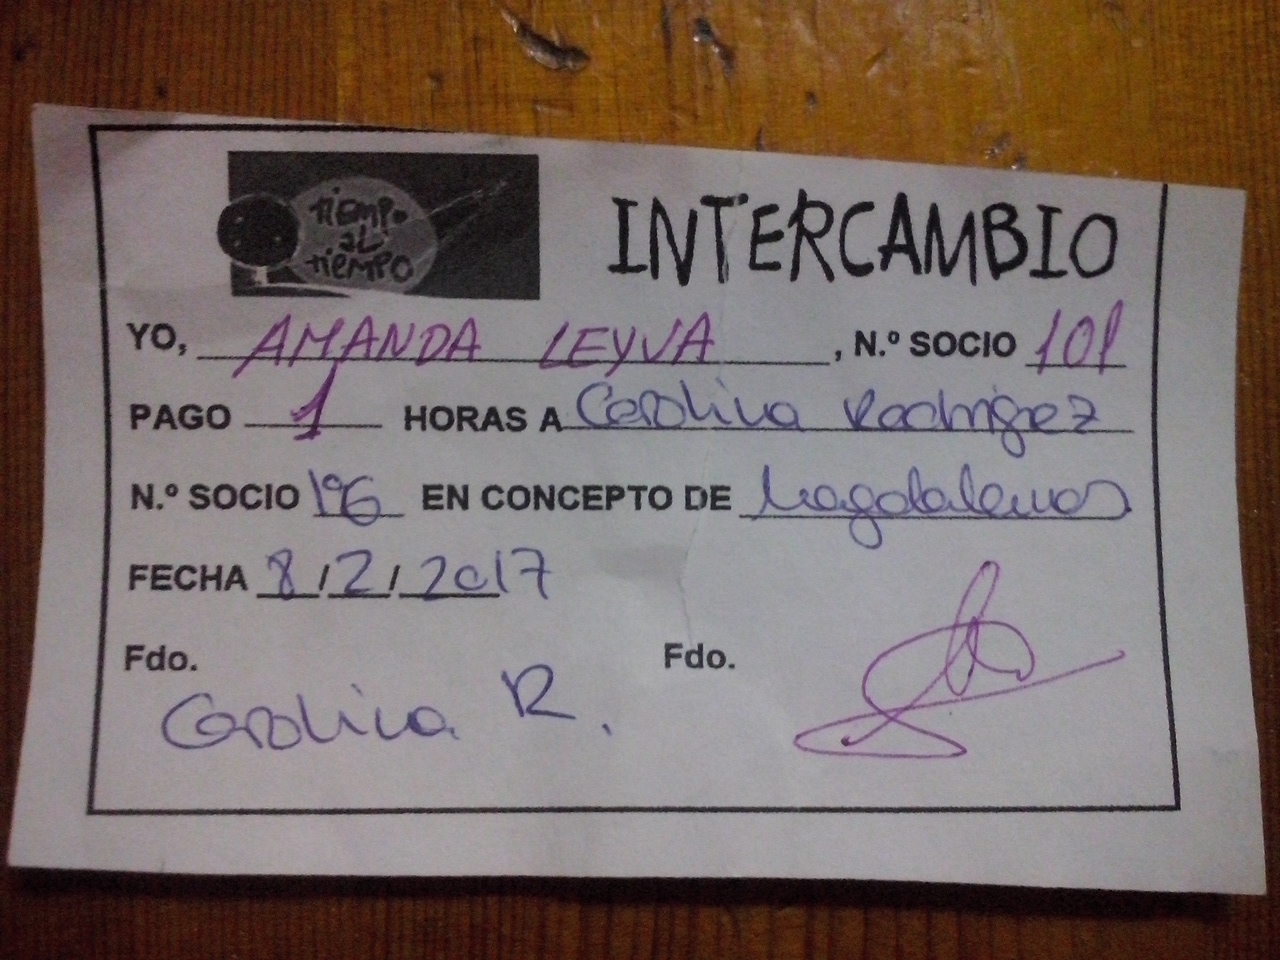 TiEMPo
aL
tiEMPO
INTERCAMBIO
YO, AMANDA LEYVA, N.º SOCIO 101
PAGO 1 HORAS A Carolina Rodriguez
N.º SOCIO 196 EN CONCEPTO DE Magdalenas
FECHA 8/2/2017
Fdo. Fdo.
Carolina R.